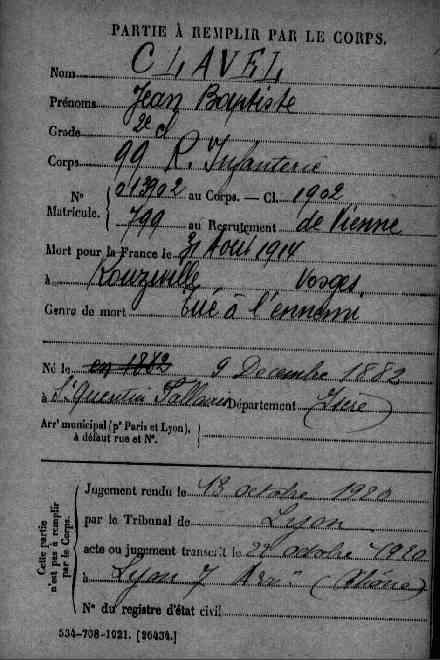 PARTIE À REMPLIR PAR LE CORPS.
Nom CLAVEL
Prénoms Jean Baptiste
Grade 2e cl
Corps 99 R. Infanterie
N° Matricule. 013902 au Corps. — Cl. 1902
799 au Recrutement de Vienne
Mort pour la France le 31 Août 1914
à Vosges
Genre de mort tué à l'ennemi
Né le en 1882 9 Decembre 1882
à St Quentin Fallavier Département Isère
Arrt municipal (pr Paris et Lyon),
à défaut rue et N°.
Cette partie n'est pas à remplir par le Corps.
Jugement rendu le 13 octobre 1920
par le Tribunal de Lyon
acte ou jugement transcrit le octobre 1920
à Lyon 7 Arrt (Rhône)
N° du registre d'état civil
534-708-1921. [26434.]